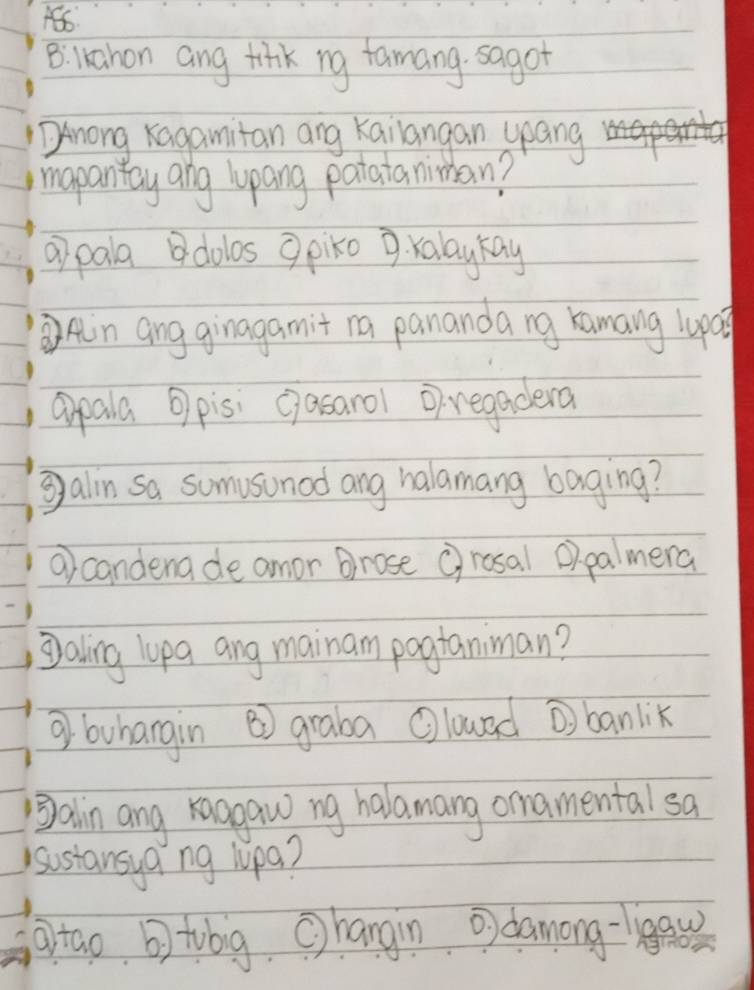 B. Ikahon ang titik ng tamang sagot
① Anong kagamitan ang kailangan upang mapanta
mapantay ang lupang patataniman?
a) pala B. dulos C) piko D. kalaykay
② Alin ang ginagamit na pananda ng kamang lupa?
a) pala B) pisi C) asarol D). regadera
③ alin sa sumusunod ang halamang baging?
a) candena de amor B) rose C) rosal D). palmera
④ aling lupa ang mainam pagtaniman?
a) buhangin B) graba C) luwad D) banlik
⑤ alin ang kaagaw ng halamang ornamental sa
sustansya ng lupa?
a) tao b) tubig C) hangin D) damong-ligaw